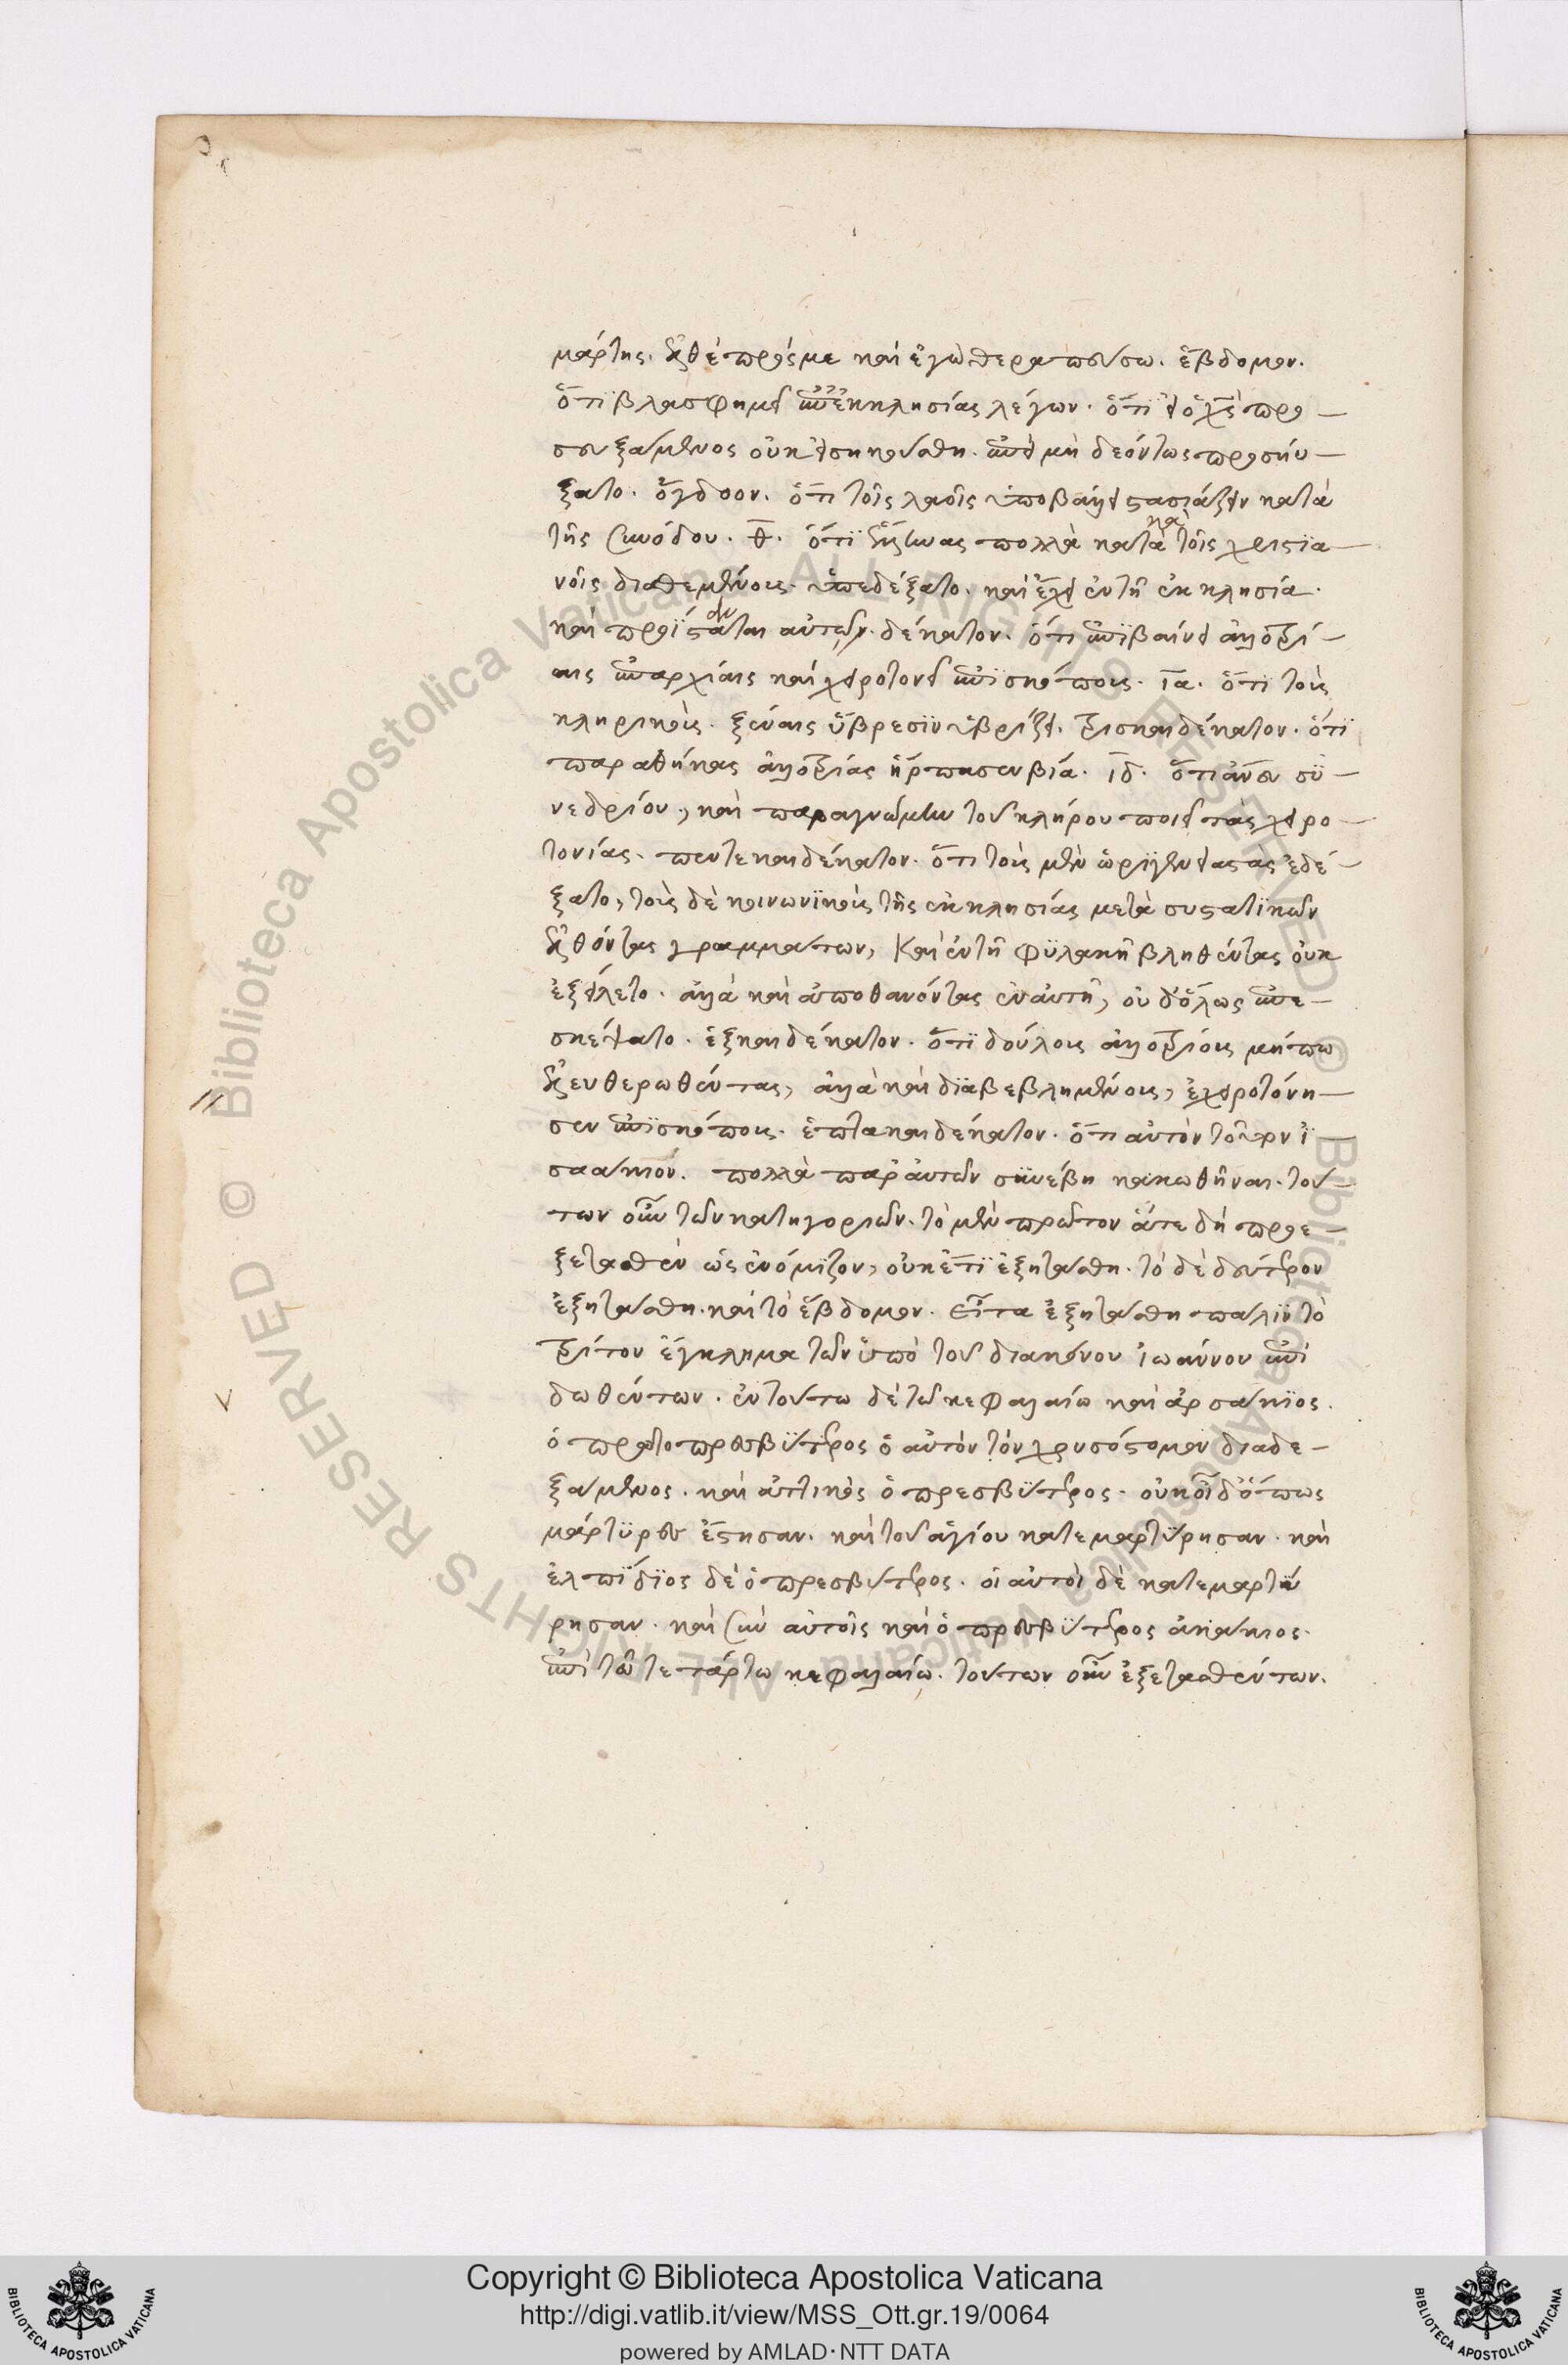 μάρτης. ἐλθὲ πρός με καὶ ἐγὼ θεραπεύσω. ἕβδομον.
ὅτι βλασφημεῖ ἐπ' ἐκκλησίας λέγων. ὅτι εἰ ὁ χ̅ς̅ προ—
σευξάμενος οὐκ εἰσηκούσθη. ἐπεὶ μὴ δεόντως προσηύ—
ξατο. ὄγδοον. ὅτι τοῖς λαοῖς ὑποβάλλει στασιάζειν κατὰ
τῆς συνόδου. θ̅. ὅτι ἕλληνας πολλὰ κακὰ τοῖς χριστια—
νοῖς διαθεμένους. ὑπεδέξατο. καὶ ἔχει ἐν τῆ ἐκκλησία.
καὶ προΐσταται αὐτῶν. δέκατον. ὅτι ἐπιβαίνει ἀλλοτρί—
αις ἐπαρχίαις καὶ χειροτονεῖ ἐπισκόπους. ι̅α̅. ὅτι τοὺς
κληρικοὺς. ξέναις ὕβρεσιν ὑβρίζει. τρισκαιδέκατον. ὅτι
παραθήκας ἀλλοτρίας ἥρπασεν βία. ι̅δ̅. ὅτι ἄνευ συ—
νεδρίου, καὶ παρὰ γνώμην τοῦ κλήρου ποιεῖ τὰς χειρο—
τονίας. πεντεκαιδέκατον. ὅτι τοὺς μὲν ὠριγενειαστὰς ἐδέ—
ξατο, τοὺς δὲ κοινωνικοὺς τῆς ἐκκλησίας μετὰ συστατικῶν
ἐλθόντας γραμμάτων, καὶ ἐν τῆ φυλακῆ βληθέντας οὐκ
ἐξείλετο. ἀλλὰ καὶ ἀποθανόντας ἐν αὐτῆ, οὐδ' ὅλως ἐπε—
σκέψατο. ἑξκαιδέκατον. ὅτι δούλους ἀλλοτρίους μήπω
ἐλευθερωθέντας, ἀλλὰ καὶ διαβεβλημένους, ἐχειροτόνη—
σεν ἐπισκόπους. ἑπτακαιδέκατον. ὅτι αὐτὸν τοῦτον ἰ—
σαάκιον. πολλὰ παρ' αὐτῶν συνέβη κακωθῆναι. τού—
των οὖν τῶν κατηγοριῶν. τὸ μὲν πρῶτον ἅτε δὴ προε—
ξετασθὲν ὡς ἐνόμιζον, οὐκέτι ἐξητάσθη. τὸ δὲ δεύτερον
ἐξητάσθη. καὶ τὸ ἕβδομον. εἶτα ἐξητάσθη πάλιν τὸ
τρίτον ἔγκλημα τῶν ὑπὸ τοῦ διακόνου ἰωάννου ἐπι
δωθέντων. ἐν τούτω δὲ τῶ κεφαλαίω καὶ ἀρσάκιος.
ὁ πρωτοπρεσβύτερος ὁ αὐτὸν τὸν χρυσόστομον διαδε—
ξάμενος. καὶ ἀττικὸς ὁ πρεσβύτερος. οὐκ οἶδ' ὅπως
μάρτυρες ἔστησαν. καὶ τοῦ ἁγίου κατεμαρτύρησαν. καὶ
ἐλπίδιος δὲ ὁ πρεσβύτερος. οἱ αὐτοὶ δὲ κατεμαρτύ
ρησαν. καὶ σὺν αὐτοῖς καὶ ὁ πρεσβύτερος ἀκάκιος.
ἐπὶ τῶ τετάρτω κεφαλαίω. τούτων οὖν ἐξετασθέντων.
Copyright © Biblioteca Apostolica Vaticana
http://digi.vatlib.it/view/MSS_Ott.gr.19/0064
powered by AMLAD·NTT DATA